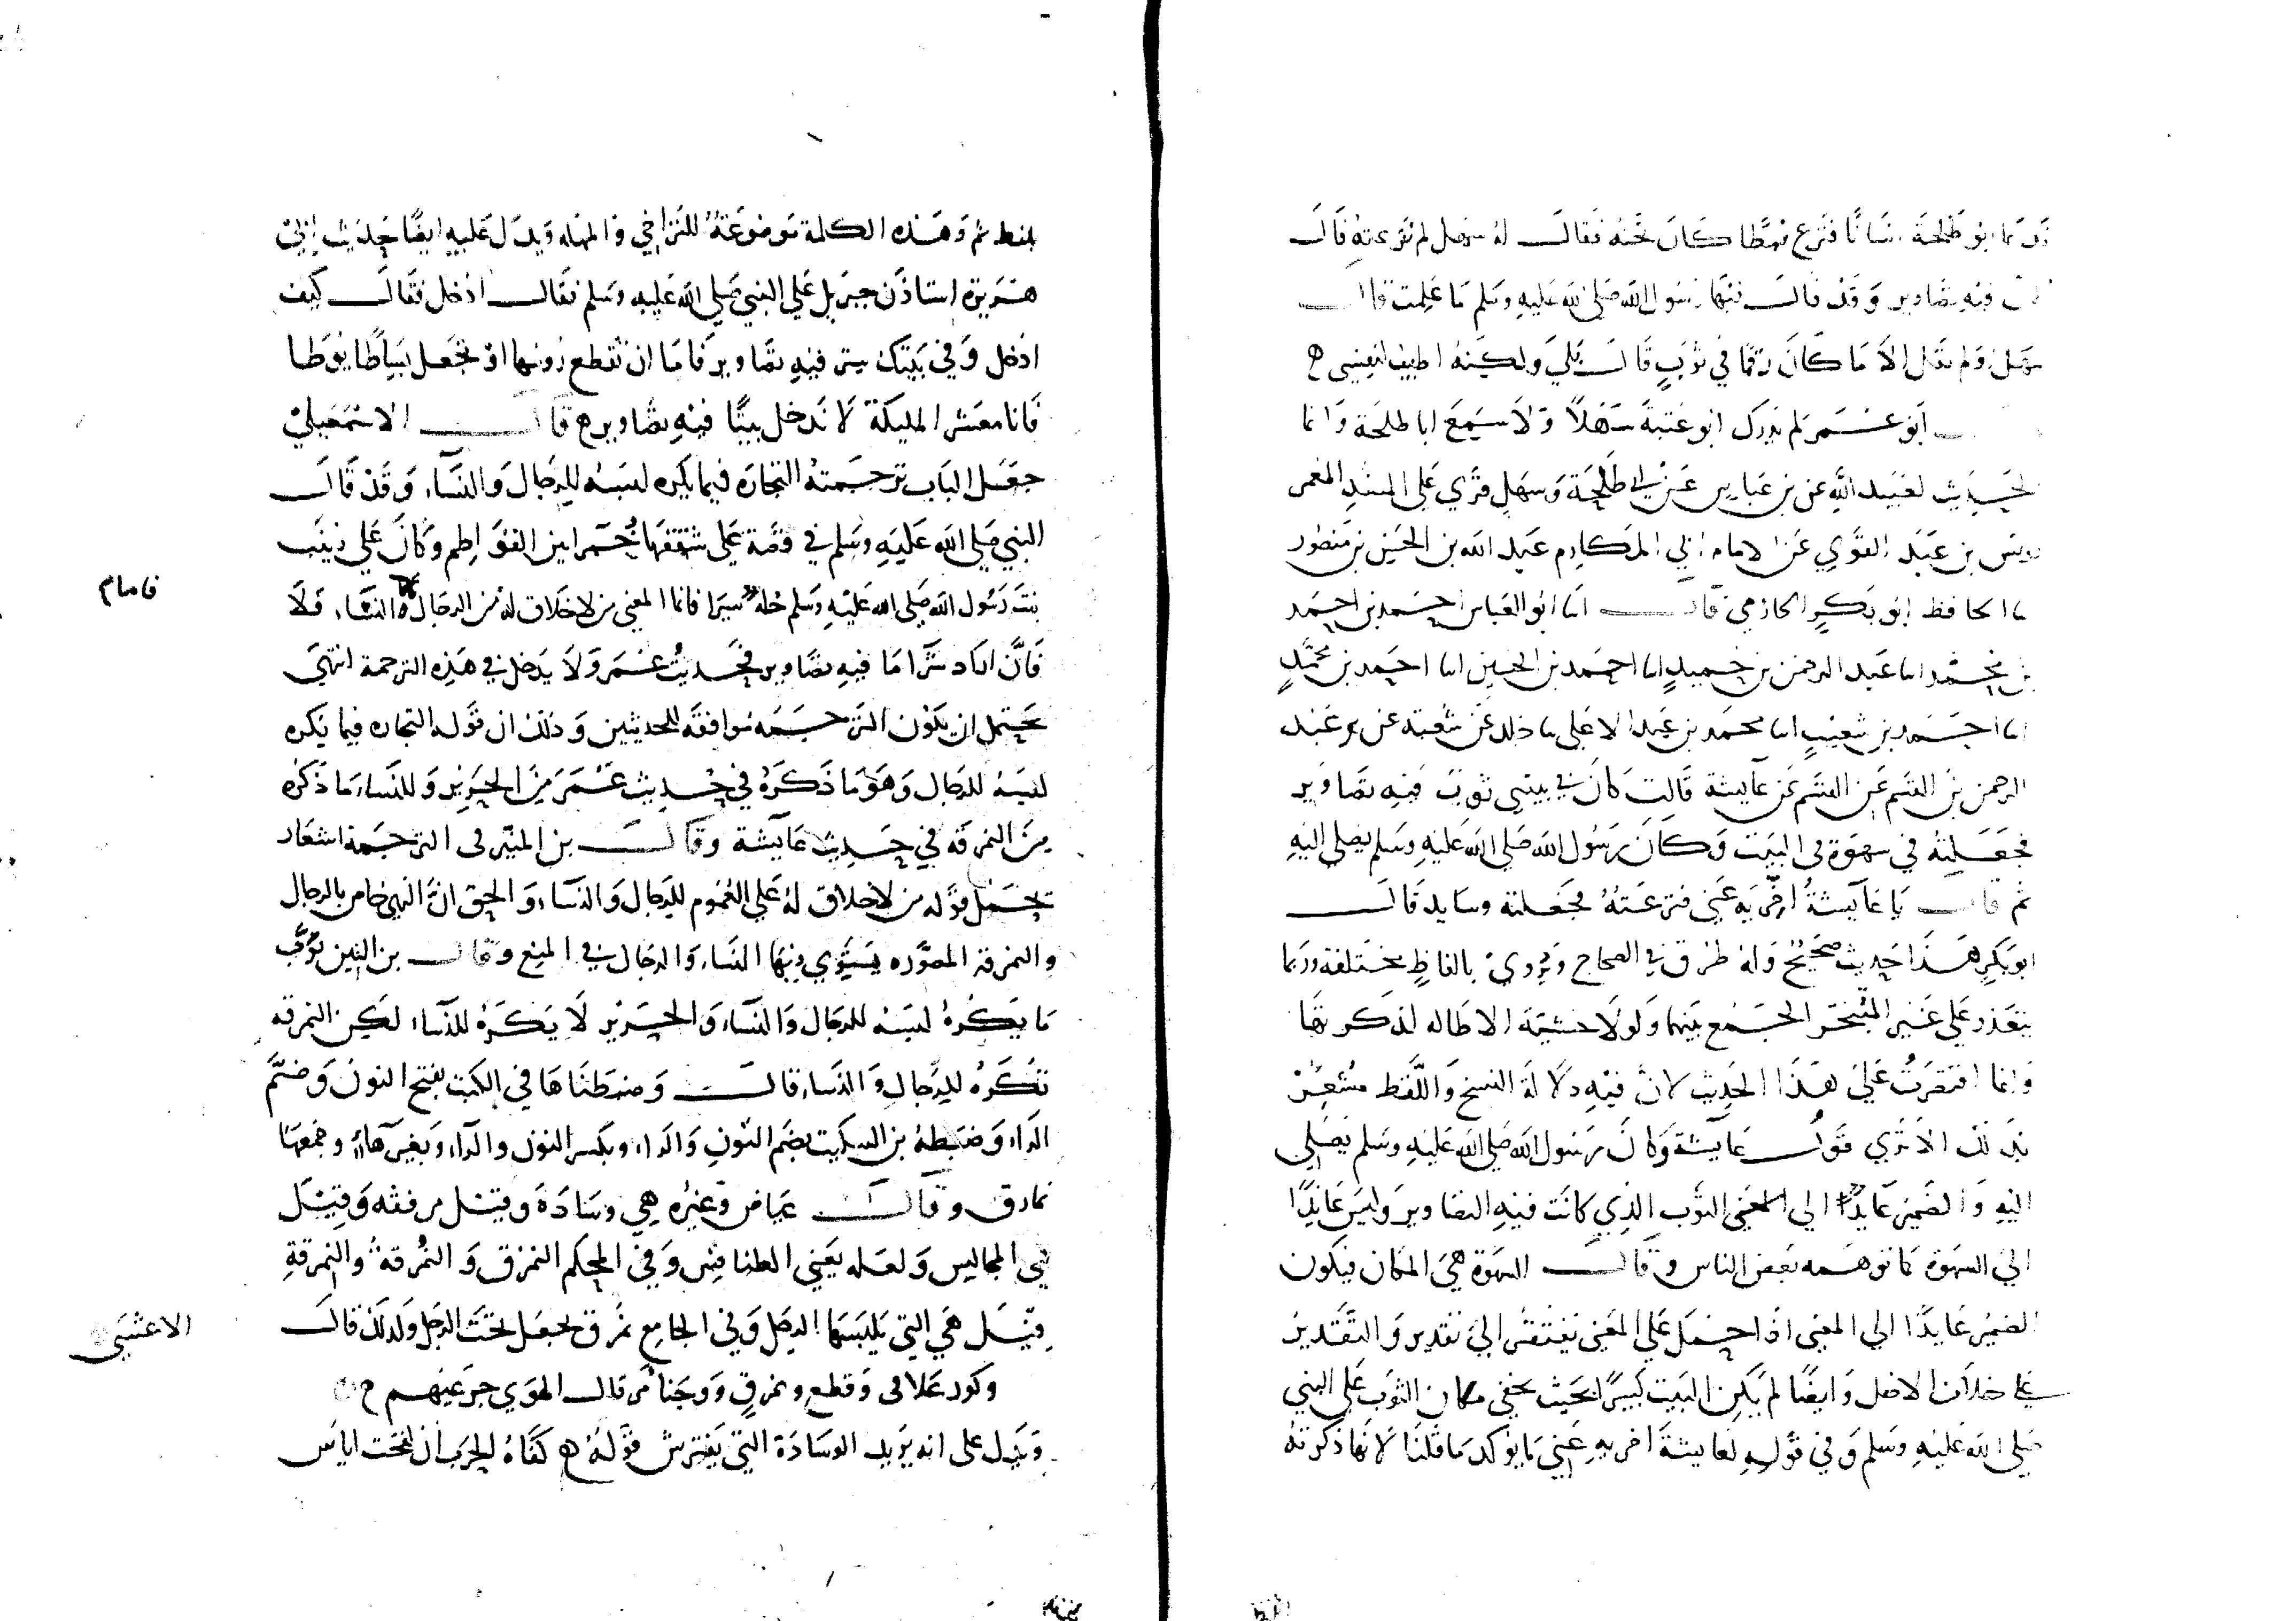 فدعا ابو طلحة انسانا فنزع نمطا كان تحته فقال له سهل لم تنزعه قال
لان فيه تصاوير وقد قال فيها رسول الله صلى الله عليه وسلم ما علمت قال
سهل اولم يقل الا ما كان رقما في ثوب قال بلى ولكنه اطيب لنفسي ه
ابو عمر لم يدرك ابو عتبة سهلا ولا سمع ابا طلحة وانما
الحديث لعبيد الله عن بن عباس عن ابي طلحة وسهل قرى على المسند المعمر
يونس بن عبد القوي عن الامام ابي المكارم عبد الله بن الحسن بن منصور
سا الحافظ ابو بكر الحازمي قال انا ابو العباس احمد بن احمد
بن محمد انا عبد الرحمن بن حميد انا احمد بن الحسين انا احمد بن محمد
انا احمد بن شعيب انا محمد بن عبد الاعلى سا خلد عن شعبة عن عبد
الرحمن بن القسم عن القسم عن عايشة قالت كان في بيتي ثوب فيه تصاوير
فجعلته في سهوة في البيت وكان رسول الله صلى الله عليه وسلم يصلي اليه
ثم قال يا عايشة اخريه عني فنزعته فجعلته وسايد قال
ابو بكر هذا حديث صحيح وله طرق في الصحاح ويروى بالفاظ مختلفة وربما
يتعذر على غير المتبحر الجمع بينهما ولولا خشية الاطاله لذكرتها
وانما اقتصرت على هذا الحديث لان فيه دلالة النسخ واللفظ مشعر
بذلك الا ترى قول عايشة وكان رسول الله صلى الله عليه وسلم يصلي
اليه والضمير عايدا الى المعنى الثوب الذي كانت فيه التصاوير وليس عايدا
الى السهوة كما توهمه بعض الناس وقال السهوة هي المكان فيكون
الضمير عايدا الى المعنى اذا حمل على المعنى يفتقر الى تقدير والتقدير
على خلاف الاصل وايضا لم يكن البيت كبيرا بحيث يخفى مكان الثوب على النبي
صلى الله عليه وسلم وفي قوله لعايشة اخريه عني ما يوكد ما قلنا لانها ذكرته
بلفظ ثم وهذه الكلمة موضوعة للتراخي والمهله ويدل عليه ايضا حديث ابي
هريرة استاذن جبريل على النبي صلى الله عليه وسلم فقال ادخل فقال كيف
ادخل وفي بيتك ستر فيه تصاوير فاما ان تقطع رؤسها او تجعل بساطا يوطا
فانا معشر المليكة لا ندخل بيتا فيه تصاوير ه قال الاسمعيلي
جعل الباب ترجمته التجارة فيما يكره لبسه للرجال والنساء وقد قال
النبي صلى الله عليه وسلم في قصة علي شققها خمرا بين الفواطم وكان على زينب
بنت رسول الله صلى الله عليه وسلم حلة سيرا فانما المعنى من لا خلاق له من الرجال النساء فلا
فان اراد شرا ما فيه تصاوير فحديث عمر ولا يدخل في هذه الترجمة انتهى
يحتمل ان يكون الترجمه موافقه للحديثين وذلك ان قوله التجاره فيما يكره
لبسه للرجال وهو ما ذكره في حديث عمر من الحرير وللنساء ما ذكره
من النمرقه في حديث عايشة وقال بن المنير في الترجمة اشعار
تحمل قوله من لا خلاق له على العموم للرجال والنساء والحق ان النهي خاص بالرجال
والنمرقه المصوره يستوي فيها النساء والرجال في المنع وقال بن التين بوب
ما يكره لبسه للرجال والنساء والحرير لا يكره للنساء لكن النمرقه
تكره للرجال والنساء قال وضبطناها في الكتب بفتح النون وضم
الراء وضبطه بن السكيت بضم النون والراء وبكسر النون والراء وبغير هاء وجمعها
نمارق وقال عياض وغيره هي وسادة وقيل مرفقه وقيل
هي المجالس ولعله يعني الطنافس وفي المحكم النمرق والنمرقة والنمرقة
قيل هي التي يلبسها الرحل وفي الجامع نمرق تجعل تحت الرحل ولذلك قال
الاعشى
وكور علافى وقطع ونمرق ووجناء مرقال الهوي جر عيهم ح
ويدل على انه يريد الوسادة التي يفترش قوله ه كفاه الحرب ان لقحت اياس
فامام